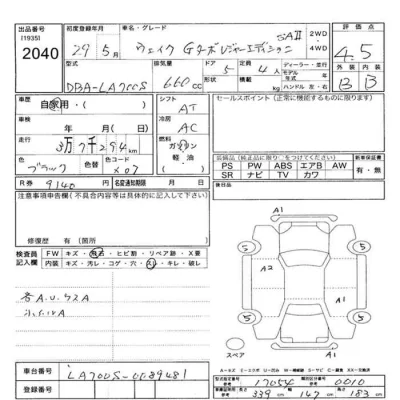 出品番号 [1935] 2040
初度登録年月 29年 5月
車名・グレード ウェイク Gターボ レジャーエディション SAⅡ
2WD・4WD
評価点 4.5
外装 B 内装 B
型式 DBA-LA700S
排気量 660cc
ドア 5
定員 4人
積載 kg
ディーラー・並行
モデル年式 年
ハンドル 左・右
車歴 自家用・
シフト AT
セールスポイント (正常に機能するものに限ります)
車検 年 月(日)
冷房 AC
走行 3万7千294km
燃料 ガソリン・軽油・( )
色 ブラック 色替
色コード X07
装備品(純正品に限り○をつけてください)
PS PW ABS エアB AW
SR ナビ TV カワ
新車保証書 有・無
R券 9140
名変通知期限 月 日
後日品
注意事項申告欄(不具合内容等は具体的に記入して下さい)
修復歴 有(箇所 )
検査員記入欄
FW キズ・飛石・ヒビ割・リペア跡・X要
内装 キズ・汚レ・コゲ・穴・スレ・キレ・破レ
各A.U.ワスA
A1
5 5
A2 A1
A1
5 5
A1
スペア
車台番号 LA700S-0089481
登録番号
型式指定番号 17054
類別区分番号 0010
339cm 147cm 183cm